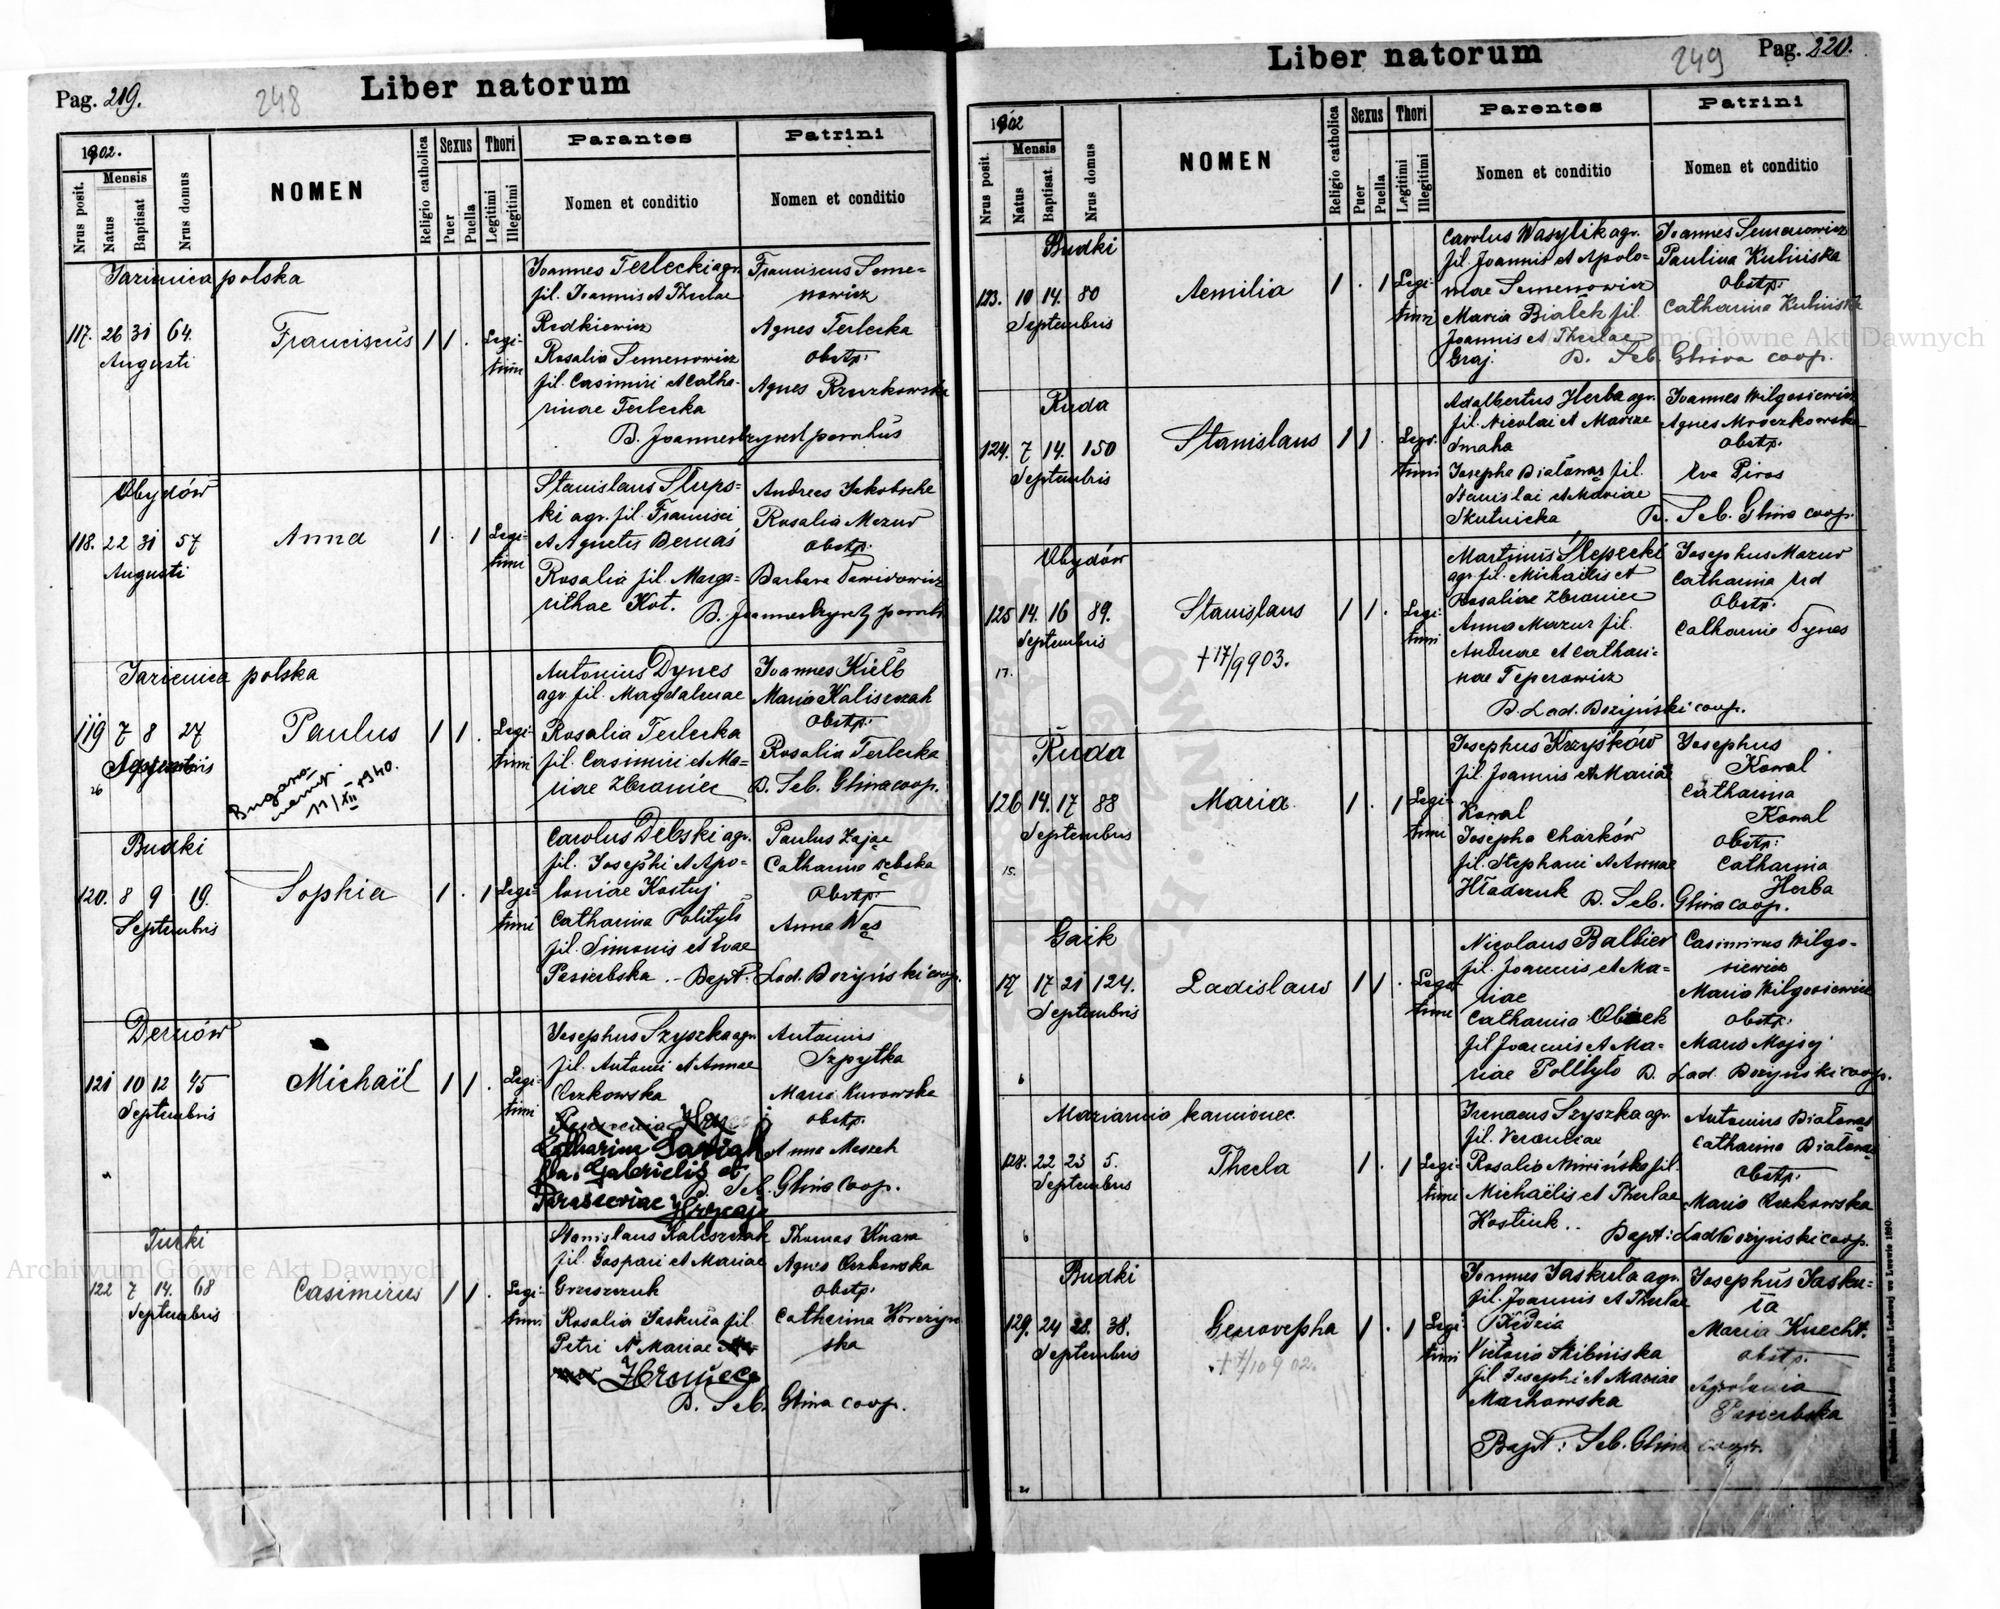 Pag. 219.
248
Liber natorum
1902.
Nrus posit.
Mensis
Natus
Baptisat
Nrus domus
NOMEN
Religio catholica
Sexus
Puer
Puella
Thori
Legitimi
Illegitimi
Parantes
Nomen et conditio
Patrini
Nomen et conditio
Jarienica polska
117. 26 31 64.
Augusti
Franciscus
1 1 .
Legi-
timi
Joannes Terlecki agr.
fil. Joannis et Theclae
Redkiewicz
Rosalia Semenowicz
fil. Casimiri et Catha-
rinae Terlecka
Franciscus Seme-
nowicz
Agnes Terlecka
obstp:
Agnes
B. Joannes parochus
Obydów
118. 22 31 57
Augusti
Anna
1 . 1
Legi-
timi
Stanislaus Słups-
ki agr. fil. Francisci
et Agnetis Bernaś
Rosalia fil. Marga-
rithae Kot.
Andreas
Rosalia Mazur
obstp:
Barbara
B. Joannes
Jarienica polska
119 7 8 27
Septembris
26
Paulus
1 1 .
Legi-
timi
11/XII 1940.
Antonius Dynes
agr. fil. Magdalenae
Rosalia Terlecka
fil. Casimiri et Ma-
riae Zbraniec
Joannes Kiełb
Maria Kaliszczak
obstp:
Rosalia Terlecka
B. Seb. Glina coop.
Budki
120. 8 9 19.
Septembris
Sophia
1 . 1
Legi-
timi
Carolus Dębski agr.
fil. Josephi et Apo-
loniae Kostuj
Catharina Polityło
fil. Simonis et Evae
Pesierbska .- Bapt. Lad. Bożyński coop.
Paulus Zając
Catharina Dębska
Obstp:
Anna Wąs
Dernów
121 10 12 45
Septembris
Michaël
1 1 .
Legi-
timi
Josephus Szyszka agr.
fil. Antonii et Annae
Czczkowska
Catharina
fil. Gabrielis et
Parasceviae Hrycaj
Antonius
Szpytka
Maria Kurowska
obstp.
Anna
B. Seb. Glina coop.
Turki
122 7 14. 68
Septembris
Casimirus
1 1 .
Legi-
timi
Stanislaus Kaliszczak
fil. Gaspari et Mariae
Grzeszczuk
Rosalia Jaskuła fil.
Petri et Mariae
Thomas Knara
Agnes
obstp.
Catharina Korczyn-
ska
B. Seb. Glina coop.
Archiwum Główne Akt Dawnych
Liber natorum
249
Pag. 220.
1902
Nrus posit.
Mensis
Natus
Baptisat
Nrus domus
NOMEN
Religio catholica
Sexus
Puer
Puella
Thori
Legitimi
Illegitimi
Parentes
Nomen et conditio
Patrini
Nomen et conditio
Budki
123. 10 14. 80
Septembris
Aemilia
1 . 1
Legi-
timi
Carolus Wasylik agr.
fil. Joannis et Apolo-
niae Semenowicz
Maria Białek fil.
Joannis et Theclae
Graj.
Joannes Semenowicz
Paulina Kubińska
Obstp:
Catharina Kubińska
B. Seb. Glina coop.
Archiwum Główne Akt Dawnych
Ruda
124. 7 14. 150
Septembris
Stanislaus
1 1 .
Legi-
timi
Adalbertus Herba agr.
fil. Nicolai et Mariae
Smaha
Josepha Białowąs fil.
Stanislai et Mariae
Skutnicka
Joannes Wilgosiewicz
Agnes Mroczkowska
obstp.
Eva Piros
B. Seb. Glina coop.
Obydów
125 14. 16 89.
Septembris
17.
Stanislaus
+ 17/9 903.
1 1 .
Legi-
timi
Martinus Ślepecki
agr. fil. Michaëlis et
Rosaliae Zbraniec
Anna Mazur fil.
Andreae et Cathari-
nae Teperowicz
Josephus Mazur
Catharina
Obstp.
Catharina Dynes
B. Lad. Bożyński coop.
Ruda
126 14. 17 88
Septembris
15.
Maria
1 . 1
Legi-
timi
Josephus Krzyśków
fil. Joannis et Mariae
Kowal
Josepha Charków
fil. Stephani et Annae
Hładczuk
Josephus
Kowal
Catharina
Kowal
Obstp:
Catharina
Herba
B. Seb. Glina coop.
Gaik
127 17 21 124.
Septembris
6
Ladislaus
1 1 .
Legi-
timi
Nicolaus Balbier
fil. Joannis et Ma-
riae
Catharina Obacek
fil Joannis et Ma-
riae Polityło
Casimirus Wilgo-
siewicz
Maria Wilgosiewicz
obstp:
Maria Mojsej
B. Lad. Bożyński coop.
Maziarnia kamionec.
128. 22 23 5.
Septembris
6
Thecla
1 . 1
Legi-
timi
Irenaeus Szyszka agr.
fil. Veroniae
Rosalia Niwińska fil.
Michaëlis et Theclae
Kostiuk..
Antonius Białowąs
Catharina Białowąs
Obstp.
Maria
Bapt: Lad Bożyński coop.
Budki
129. 24 28. 38.
Septembris
21
Genovepha
+ 7/10 902.
1 . 1
Legi-
timi
Joannes Jaskuła agr.
fil. Joannis et Theclae
Kędzia
Victoria Skibińska
fil Josephi et Mariae
Machowska
Josephus Jasku-
ła
Maria Knecht.
obstp.
Apolonia
Pesierbska
Bapt: Seb. Glina coop.